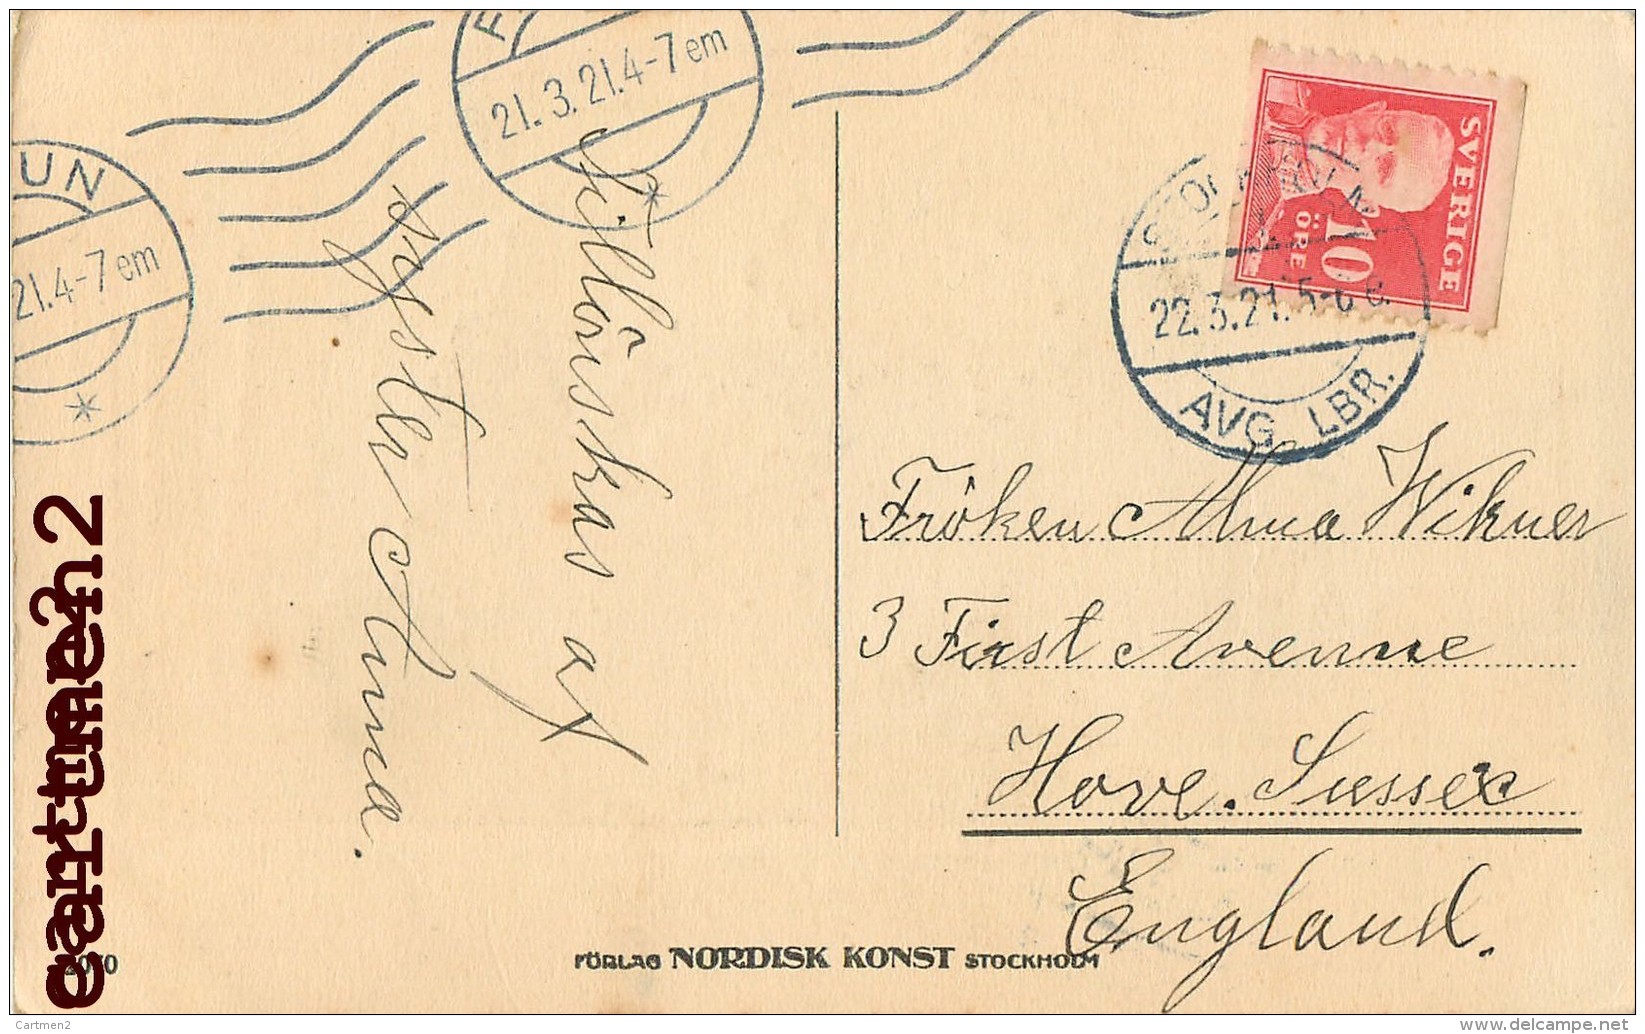 UN
21.4-7 em
21.3.21.4-7 em
SVERIGE
10
ÖRE
STOCKHOLM
22.3.21.5-6
AVG LBR.
Tillönskas af
Syster Anna.
Fröken Alma Wikner
3 First Avenue
Hove. Sussex
England.
FÖRLAG NORDISK KONST STOCKHOLM
cartmen2
Cartmen2
www.delcampe.net